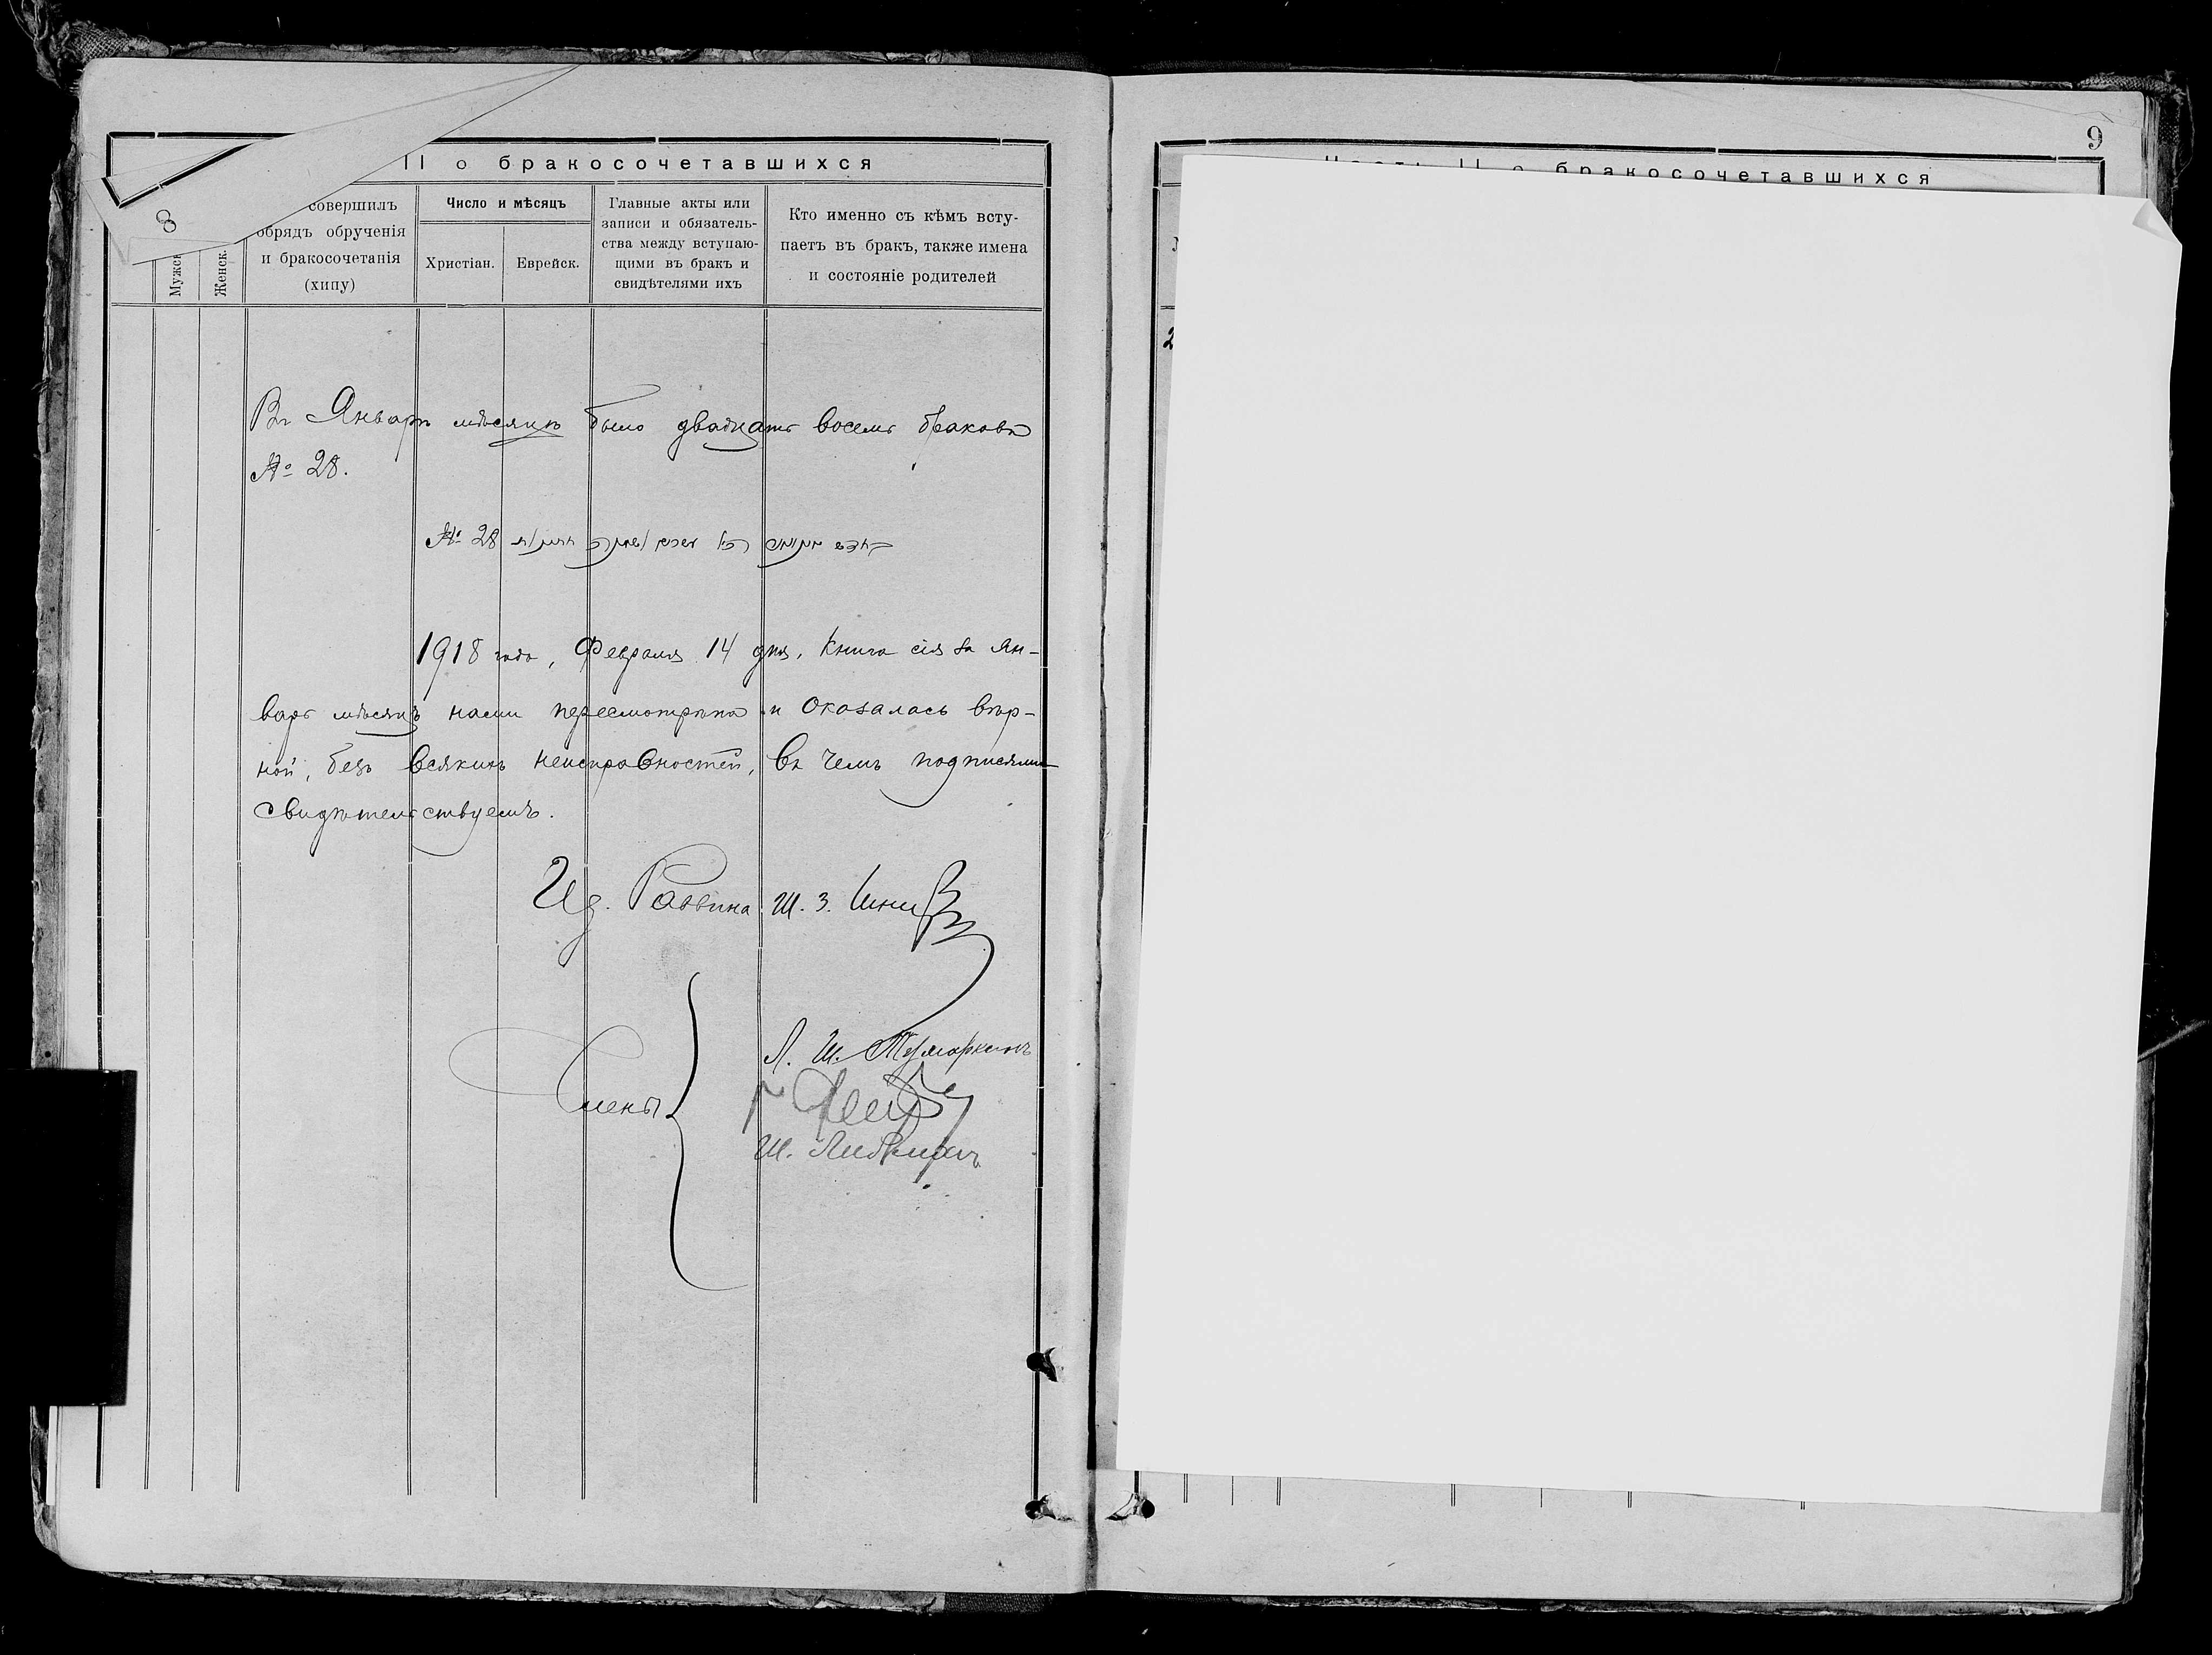 II о бракосочетавшихся
8
совершилъ
обрядъ обрученія
и бракосочетанія
(хипу)
Мужск
Женск.
Число и мѣсяцъ
Христіан.
Еврейск.
Главные акты или
записи и обязатель-
ства между вступаю-
щими въ бракъ и
свидѣтелями ихъ
Кто именно съ кѣмъ всту-
паетъ въ бракъ, также имена
и состояніе родителей
Въ Январѣ мѣсяцѣ было двадцать восемь браковъ
№ 28.
№ 28
1918 года, Февраля 14 дня. Книга сія за Ян-
варь мѣсяцъ нами пересмотрѣна и оказалась вѣр-
ной, безъ всякихъ неисправностей, въ чемъ подписями
свидѣтельствуемъ.
Раввина Ш. З.
Члены
Л. Ш. Тумаркинъ
Ш. Либманъ
9
Часть II о бракосочетавшихся
2